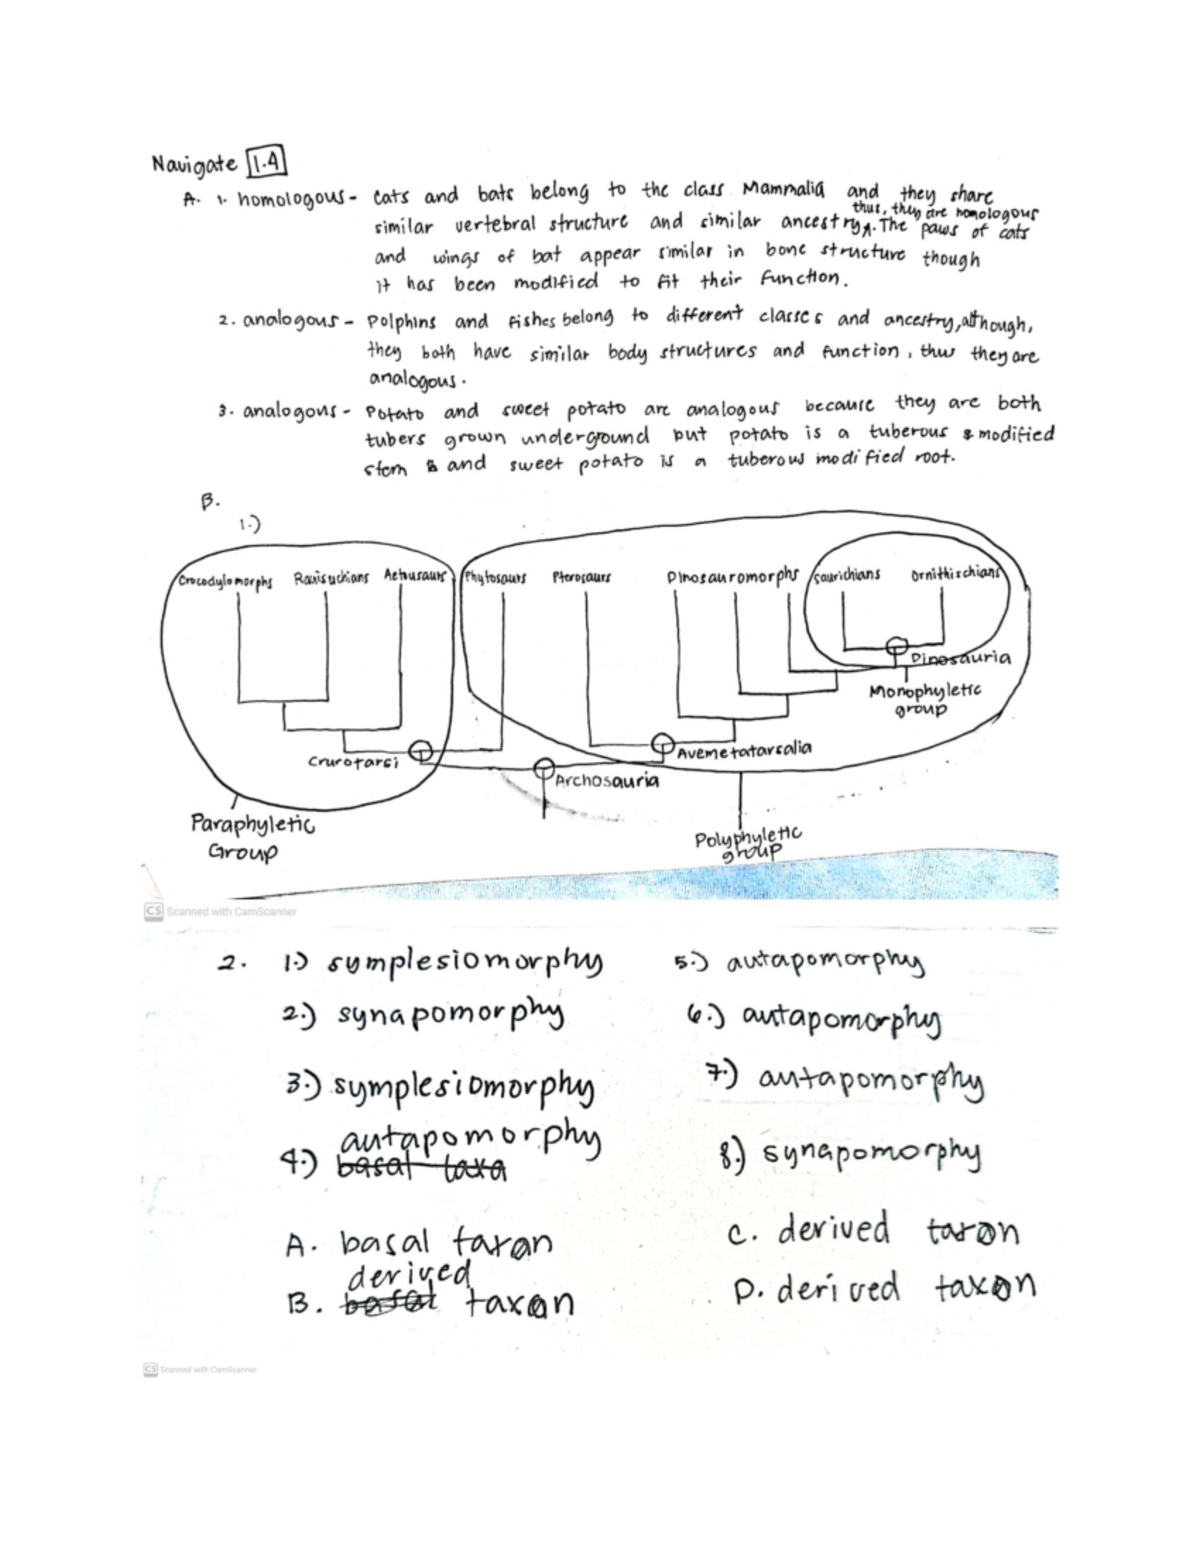 Navigate 1.4
A. 1. homologous - Cats and bats belong to the class Mammalia and they share
thus, they are homologous
similar vertebral structure and similar ancestry. The paws of cats
and wings of bat appear similar in bone structure though
it has been modified to fit their function.
2. analogous - Dolphins and fishes belong to different classes and ancestry, although,
they both have similar body structures and function, thus they are
analogous.
3. analogous - Potato and sweet potato are analogous because they are both
tubers grown underground but potato is a tuberous modified
stem and sweet potato is a tuberous modified root.
B.
1.)
Crocodylomorphs Rauisuchians Aetusaurs Phytosaurs Pterosaurs Dinosauromorphs Saurichians Ornithischians
Dinosauria
Monophyletic
group
Crurotarsi Avemetatarsalia
Archosauria
Paraphyletic
Group
Polyphyletic
group
CS Scanned with CamScanner
2. 1.) symplesiomorphy 5.) autapomorphy
2.) synapomorphy 6.) autapomorphy
3.) symplesiomorphy 7.) autapomorphy
autapomorphy
4.) basal taxa 8.) synapomorphy
A. basal taxon C. derived taxon
derived
B. basal taxon D. derived taxon
CS Scanned with CamScanner